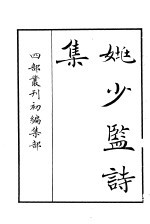 姚少監詩
集
四部叢刊初編集部